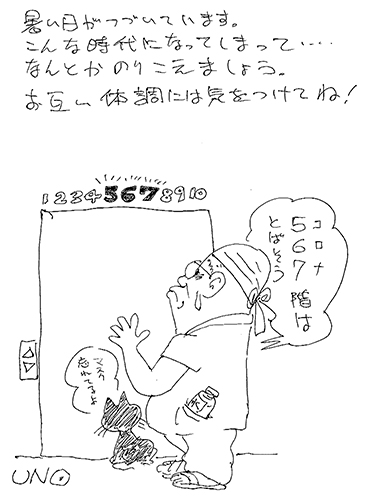 暑い日がつづいています。
こんな時代になってしまって‥‥
なんとかのりこえましょう。
お互い体調には気をつけてね！
1 2 3 4 5 6 7 8 9 10
コロナ
567階は
とばそう
マスク
忘れてるよ
水
UNO